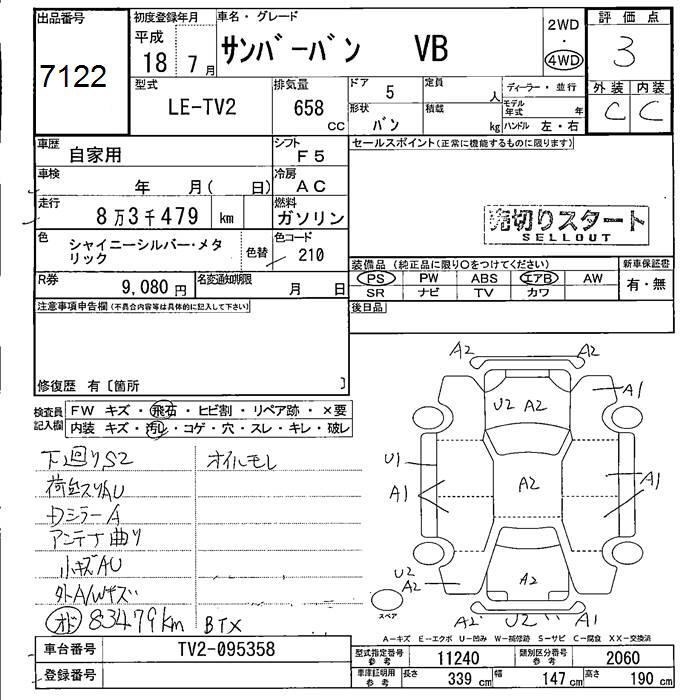 出品番号
7122
初度登録年月
平成
18 7月
車名・グレード
サンバーバン VB
2WD
・
4WD
評価点
3
外装 内装
C C
型式
LE-TV2
排気量
658
CC
ドア
5
定員
人
形状
バン
積載
kg
ディーラー・並行
モデル年式 年
ハンドル 左・右
車歴
自家用
シフト
F5
車検
年 月( 日)
冷房
AC
走行
8万3千479 km
燃料
ガソリン
色
シャイニーシルバー・メタリック
色替
色コード
210
R券
9,080円
名変通知期限
月 日
セールスポイント(正常に機能するものに限ります)
売切りスタート
SELLOUT
装備品(純正品に限り○をつけてください)
新車保証書
PS PW ABS エアB AW
SR ナビ TV カワ
有・無
後日品
注意事項申告欄(不具合内容等は具体的に記入して下さい)
修復歴 有〔箇所 〕
検査員記入欄
FW キズ・飛石・ヒビ割・リペア跡・×要
内装 キズ・汚レ・コゲ・穴・スレ・キレ・破レ
下廻りS2 オイルモレ
荷台スリAU
Dミラー A
アンテナ曲り
小キズAU
外A/Wキズ
オド 83479km BTX
A2 A2
U2 A2 A1
U1
A1 A2 A1
U2
A2 A2
A2 U2 A1
スペア
A-キズ E-エクボ U-凹み W-補修跡 S-サビ C-腐食 XX-交換済
車台番号
TV2-095358
登録番号
型式指定番号
参考
11240
類別区分番号
参考
2060
車庫証明用
参考
長さ
339 cm
幅
147 cm
高さ
190 cm